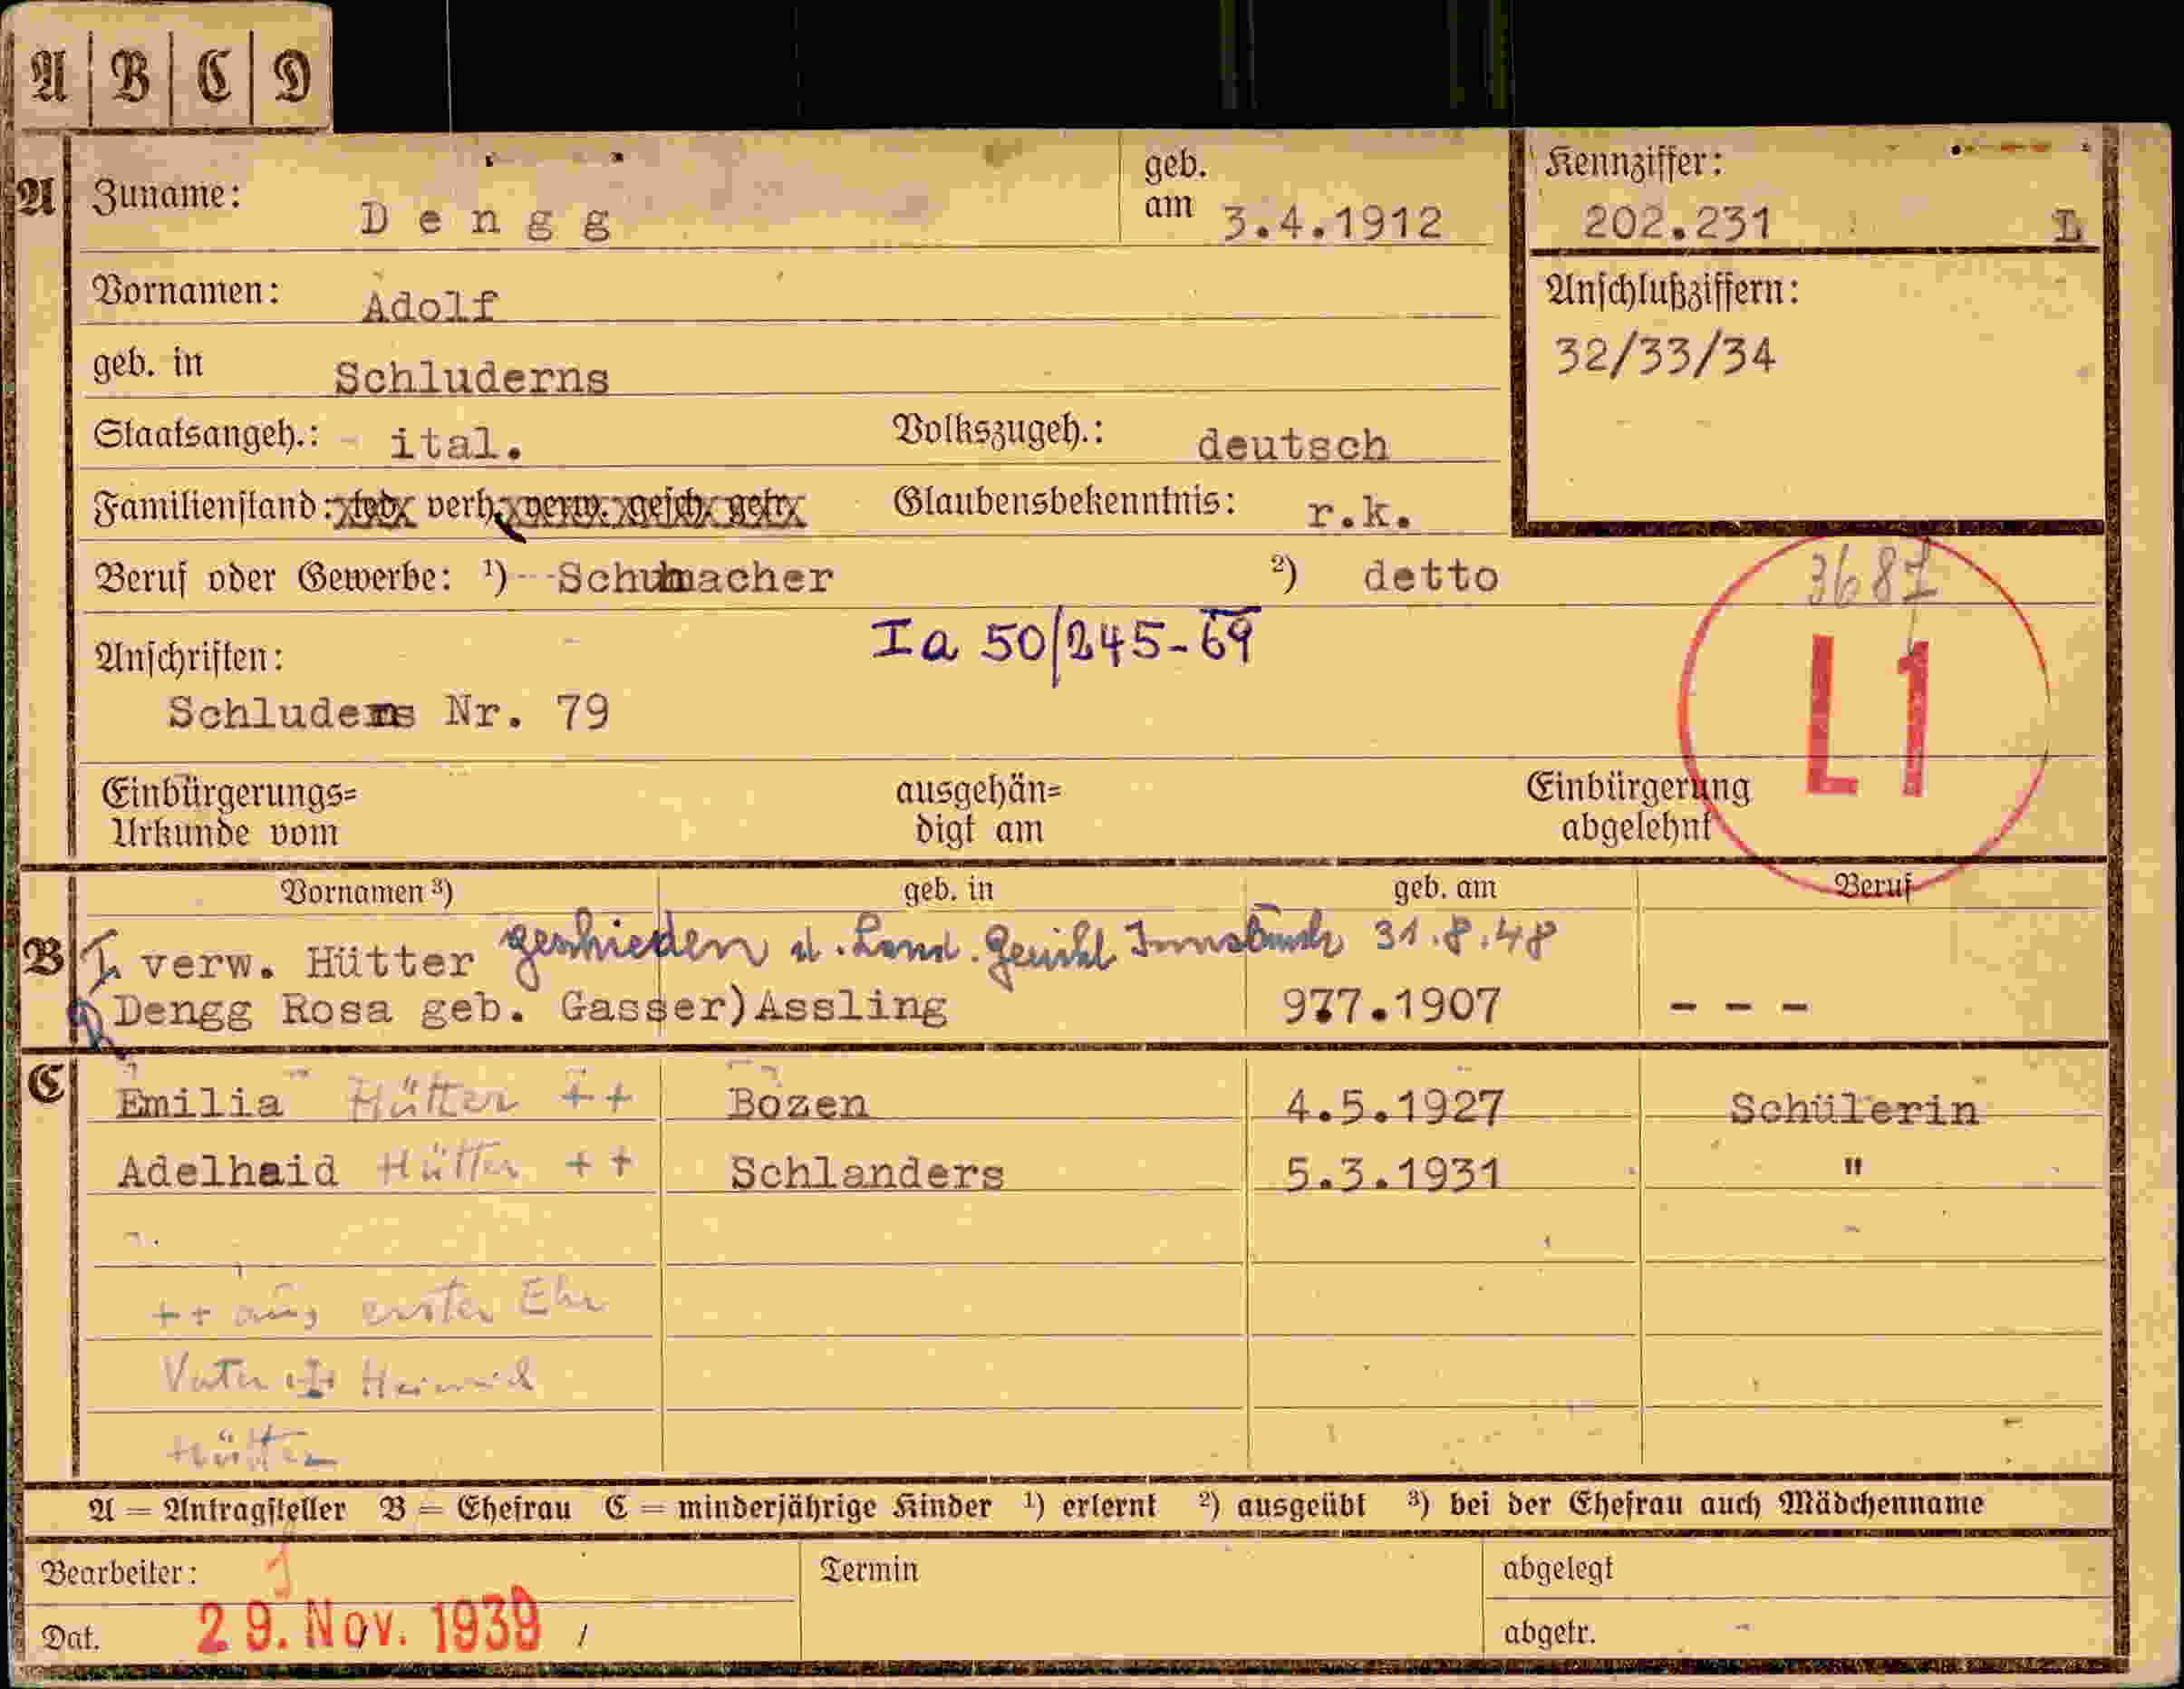 A B C D
A Zuname: Dengg geb. am 3.4.1912
Kennziffer: 202.231 L
Vornamen: Adolf
Anschlußziffern:
32/33/34
geb. in Schluderns
Staatsangeh.: ital. Volkszugeh.: deutsch
Familienstand: led. verh. verw. gesch. getr. Glaubensbekenntnis: r.k.
Beruf oder Gewerbe: ¹) Schuhmacher ²) detto
3687
Anschriften: Ia 50/245-69
L1
Schluderns Nr. 79
Einbürgerungs= ausgehän= Einbürgerung
Urkunde vom digt am abgelehnt
Vornamen ³) geb. in geb. am Beruf
B verw. Hütter geschieden d. Land. Gericht Innsbruck 31.8.48
Dengg Rosa geb. Gasser) Assling 9.7.1907 - - -
C Emilia Hütter ++ Bozen 4.5.1927 Schülerin
Adelhaid Hütter ++ Schlanders 5.3.1931 "
++ aus erster Ehe
Vater Heinrich
Hütter
A = Antragsteller B = Ehefrau C = minderjährige Kinder ¹) erlernt ²) ausgeübt ³) bei der Ehefrau auch Mädchenname
Bearbeiter: Termin abgelegt
Dat. 29. Nov. 1939 abgetr.